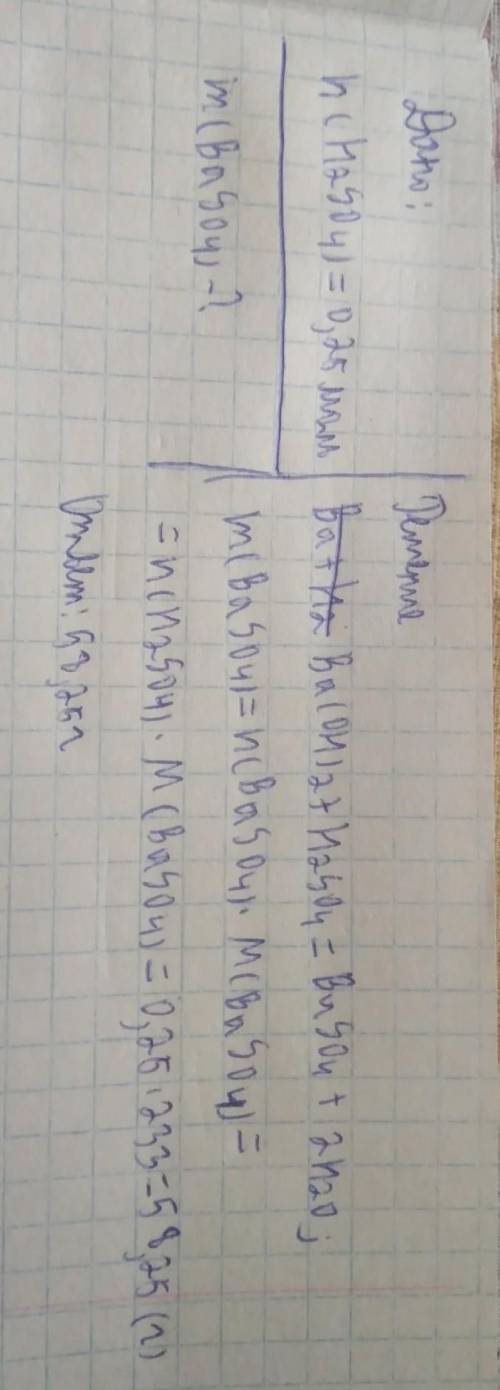 Дано:
n(H2SO4) = 0,25 моль
m(BaSO4) - ?
Решение
Ba + H2 Ba(OH)2 + H2SO4 = BaSO4 + 2H2O;
m(BaSO4) = n(BaSO4) · M(BaSO4) =
= n(H2SO4) · M(BaSO4) = 0,25 · 233 = 58,25 (г)
Ответ: 58,25г